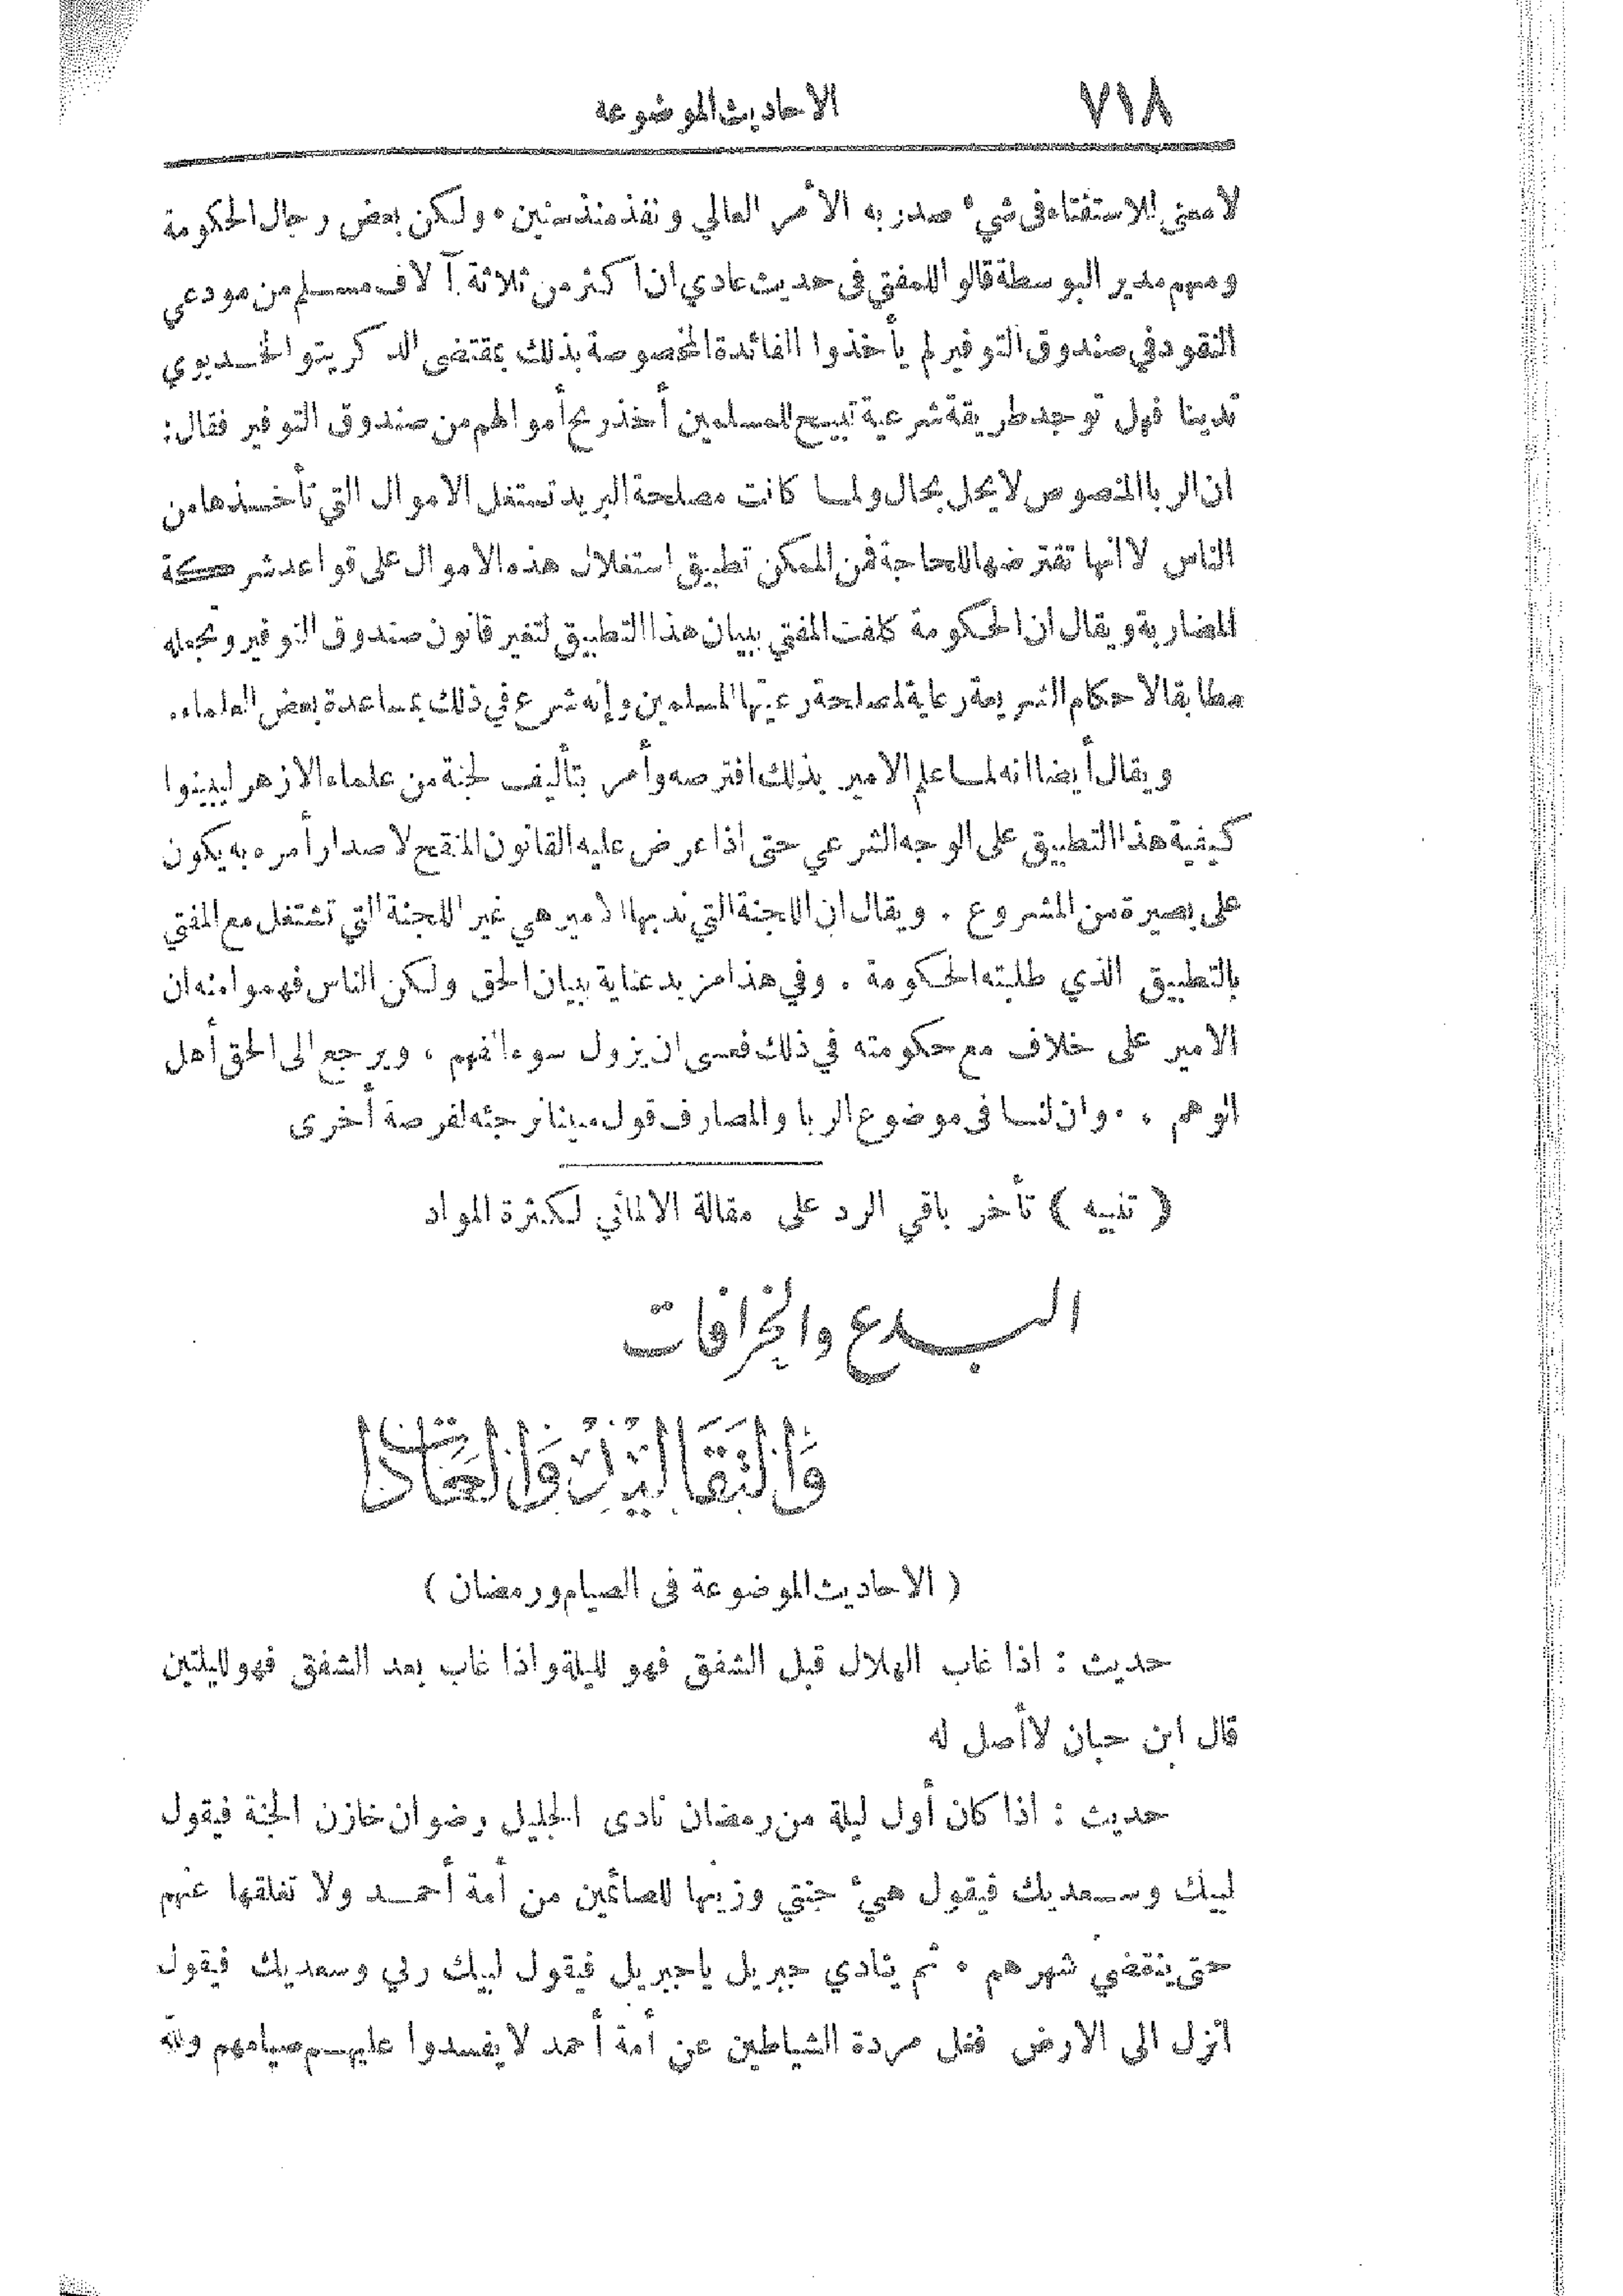 ٧١٨ الاحاديث الموضوعه
لا معنى للاستفتاء في شيء صدر به الأمر العالي ونفذ منذ سنين . ولكن بعض رجال الحكومة
ومنهم مدير البوسطة قالوا للمفتي في حديث عادي ان أكثر من ثلاثة آلاف مسلم من مودعي
النقود في صندوق التوفير لم يأخذوا الفائدة المخصوصة بذلك بمقتضى الدكريتو الخديوي
تدينا فهل توجد طريقة شرعية تبيح للمسلمين أخذ ربح أموالهم من صندوق التوفير فقال :
ان الربا المنصوص لا يحل بحال ولما كانت مصلحة البريد تستغل الاموال التي تأخذها من
الناس لا انها تقترضها للحاجة فمن الممكن تطبيق استغلال هذه الاموال على قواعد شركة
المضاربة ويقال ان الحكومة كلفت المفتي ببيان هذا التطبيق لتغير قانون صندوق التوفير وتجعله
مطابقا لاحكام الشريعة رعاية لمصلحة رعيتها المسلمين وإنه شرع في ذلك بمساعدة بعض العلماء .
ويقال أيضا انه لما علم الامير بذلك افترصه وأمر بتأليف لجنة من علماء الازهر ليبينوا
كيفية هذا التطبيق على الوجه الشرعي حتى اذا عرض عليه القانون المنقح لاصدار أمره به يكون
على بصيرة من المشروع . ويقال ان اللجنة التي ندبها الامير هي غير اللجنة التي تشتغل مع المفتي
بالتطبيق الذي طلبته الحكومة . وفي هذا مزيد عناية ببيان الحق ولكن الناس فهموا منه ان
الامير على خلاف مع حكومته في ذلك فعسى ان يزول سوء الفهم ، ويرجع الى الحق أهل
الوهم ، . وان لنا في موضوع الربا والمصارف قولا مبينا نرجئه لفرصة أخرى
( تنبيه ) تأخر باقي الرد على مقالة الالماني لكثرة المواد
البدع والخرافات
وَالتَّقَالِيْدُ وَالْعَادَاتُ
( الاحاديث الموضوعة في الصيام ورمضان )
حديث : اذا غاب الهلال قبل الشفق فهو لليلة واذا غاب بعد الشفق فهو لليلتين
قال ابن حبان لا أصل له
حديث : اذا كان أول ليلة من رمضان نادى الجليل رضوان خازن الجنة فيقول
لبيك وسعديك فيقول هيء جنتي وزينها للصائمين من أمة أحمد ولا تغلقها عنهم
حتى ينقضي شهرهم . ثم ينادي جبريل يا جبريل فيقول لبيك ربي وسعديك فيقول
انزل الى الارض فغل مردة الشياطين عن أمة أحمد لا يفسدوا عليهم صيامهم ولله